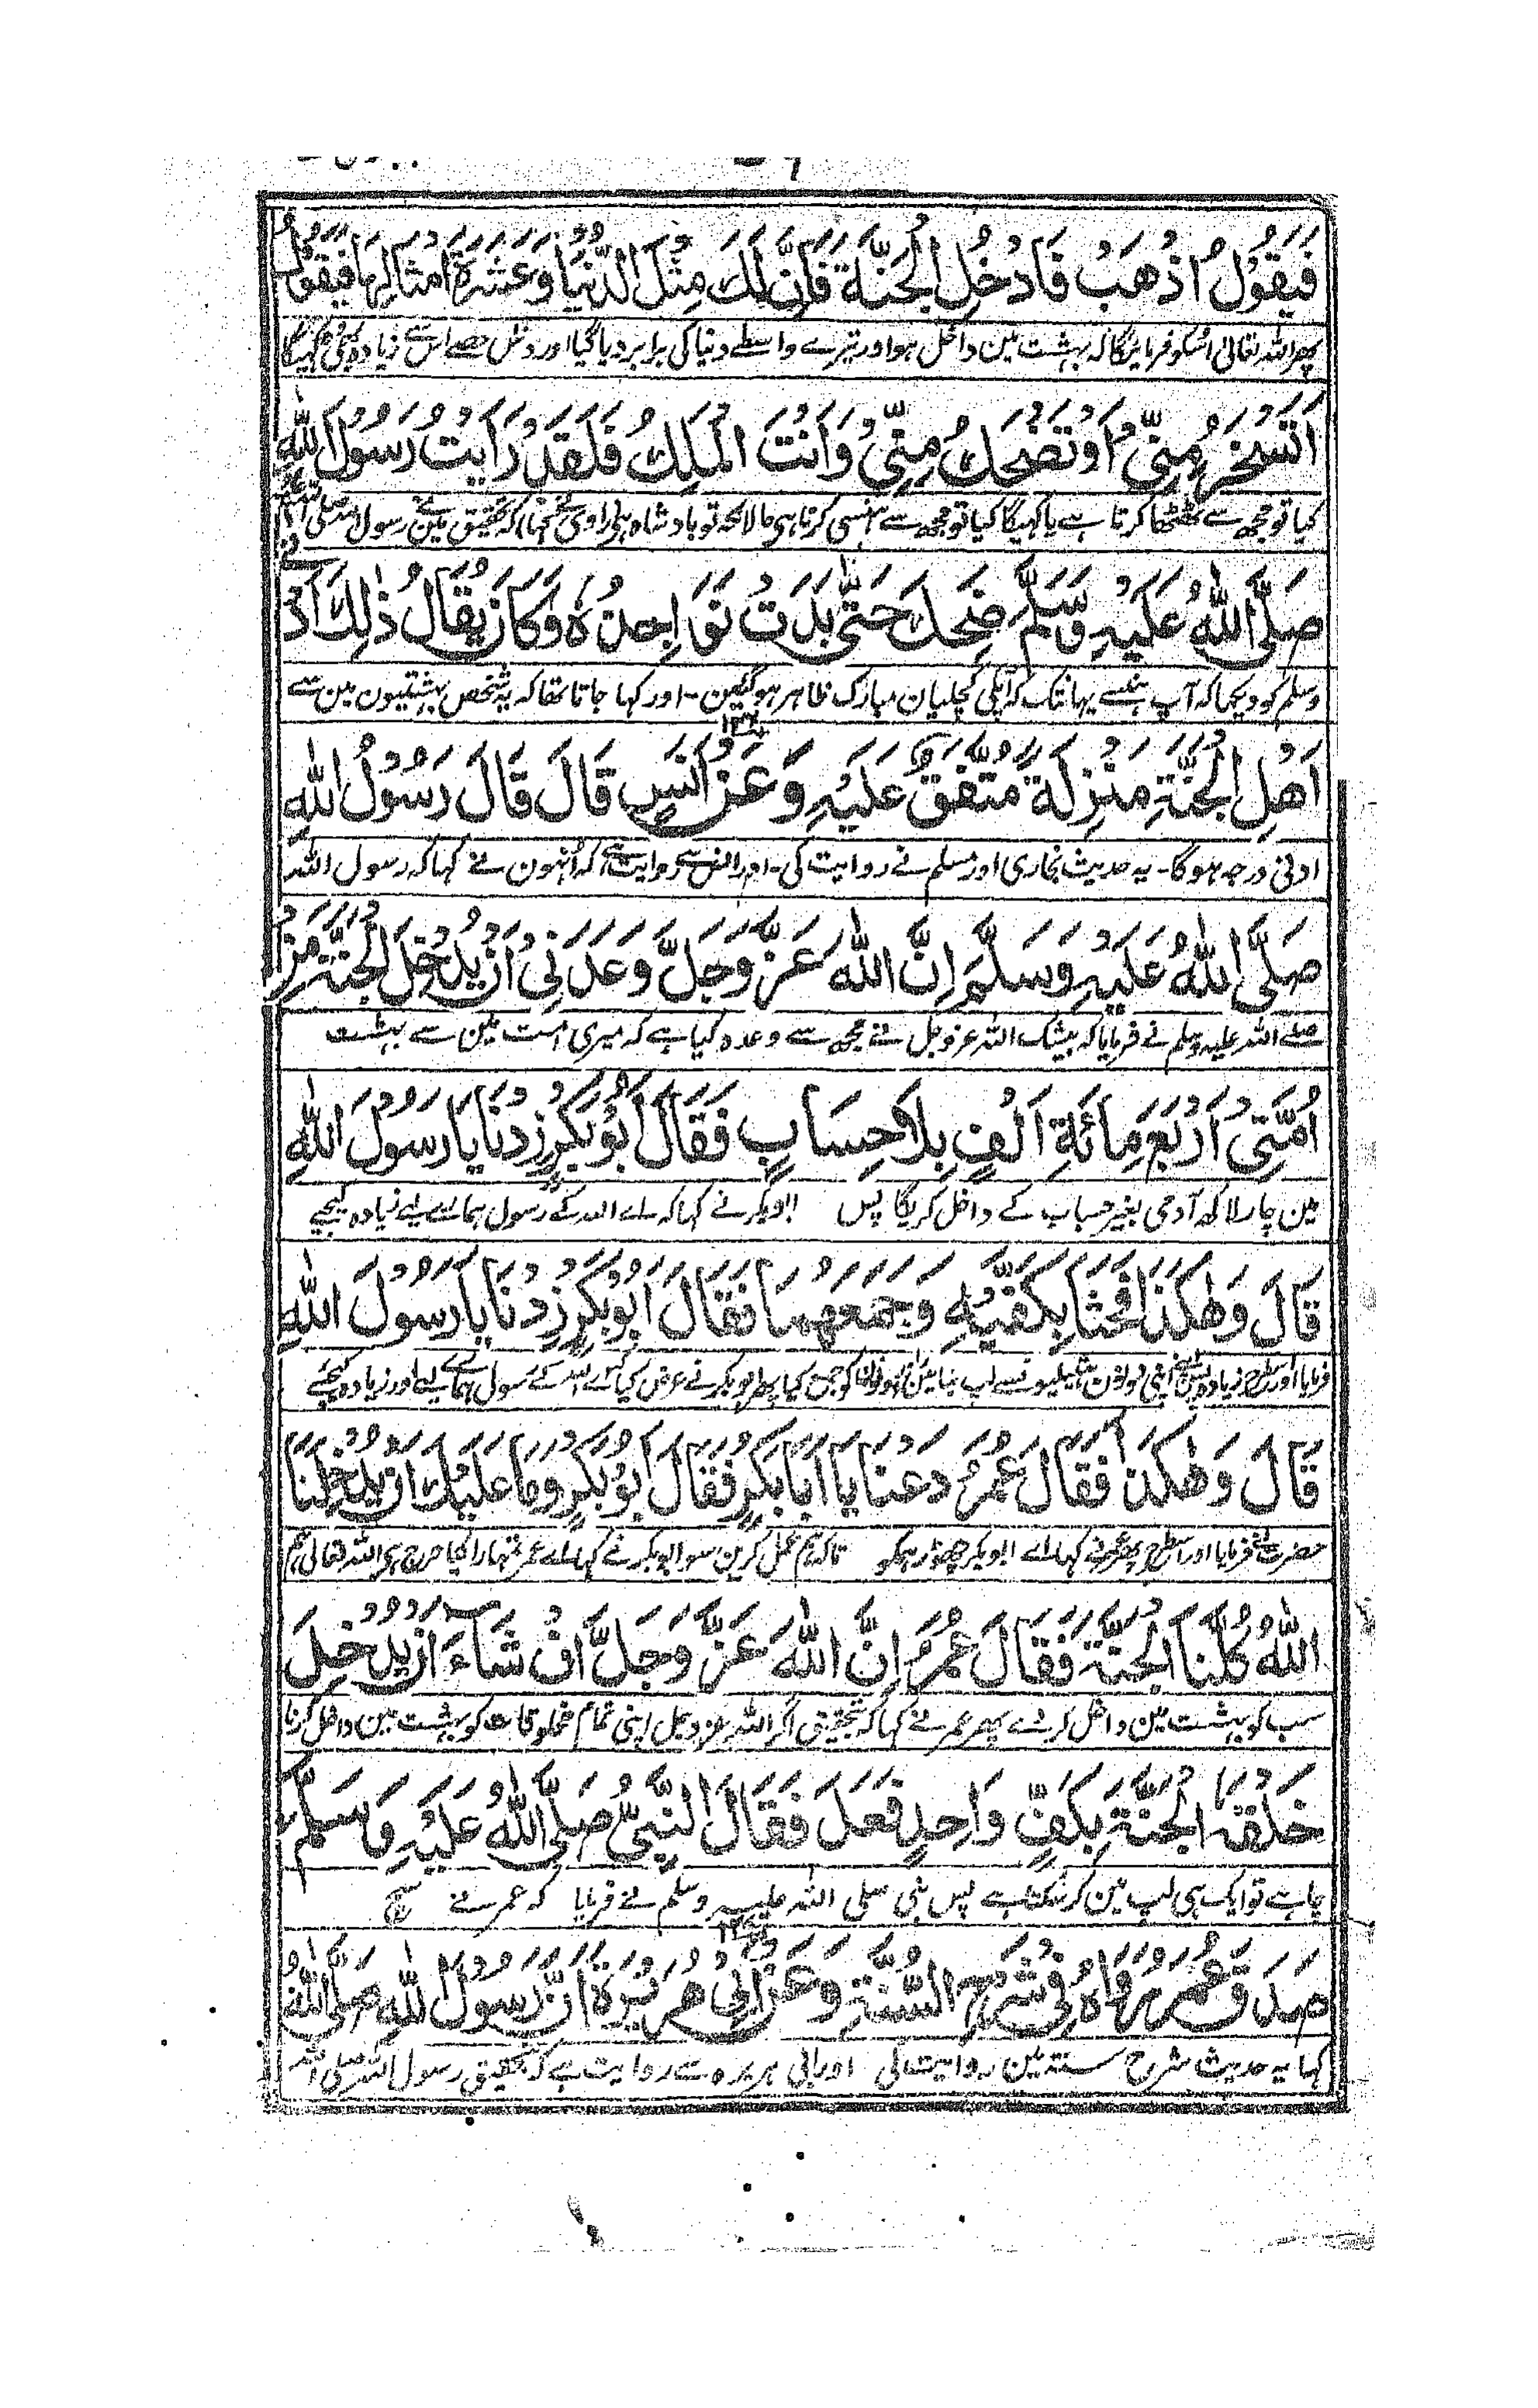 فَيَقُوْلُ اذْهَبْ فَادْخُلِ الْجَنَّةَ فَاِنَّ لَكَ مِثْلَ الدُّنْيَا وَعَشَرَةَ اَمْثَالِهَا فَيَقُوْلُ
پھر اللہ تعالیٰ اسکو فرمائیگا کہ بہشت مین داخل ہو اور تیرے واسطے دنیا کی برابر دیا گیا اور دس حصے اس سے زیادہ
اَتَسْخَرُ مِنِّیْ اَوْ تَضْحَكُ مِنِّیْ وَاَنْتَ الْمَلِكُ فَلَقَدْ رَاَیْتُ رَسُوْلَ اللّٰهِ
کیا تو مجھ سے ٹھٹھا کرتا ہے یا کہیگا کیا تو مجھ سے ہنسی کرتا ہی حالانکہ تو بادشاہ ہی راوی نے کہا کہ تحقیق مین نے رسول اللہ صلی اللہ علیہ
صَلَّی اللّٰهُ عَلَیْهِ وَسَلَّمَ ضَحِكَ حَتّٰی بَدَتْ نَوَاجِذُهٗ وَكَانَ یُقَالُ ذٰلِكَ اَدْنٰی
وسلم کو دیکھا کہ آپ ہنسے یہانتک کہ آپکی کچلیان مبارک ظاہر ہو گئین - اور کہا جاتا تھا کہ یہ شخص بہشتیون مین سے
اَهْلِ الْجَنَّةِ مَنْزِلَةً مُتَّفَقٌ عَلَیْهِ وَعَنْ اَنَسٍ قَالَ قَالَ رَسُوْلُ اللّٰهِ
ادنی درجہ ہوگا - یہ حدیث بخاری اور مسلم نے روایت کی - اور انس سے روایت ہے کہ انہون نے کہا کہ رسول اللہ
صَلَّی اللّٰهُ عَلَیْهِ وَسَلَّمَ اِنَّ اللّٰهَ عَزَّ وَجَلَّ وَعَدَنِیْ اَنْ یُدْخِلَ الْجَنَّةَ مِنْ
صلے اللہ علیہ وسلم نے فرمایا کہ بیشک اللہ عزوجل نے مجھ سے وعدہ کیا ہے کہ میری امت مین سے بہشت
اُمَّتِیْ اَرْبَعَ مِائَةِ اَلْفٍ بِلَا حِسَابٍ فَقَالَ اَبُوْ بَكْرٍ زِدْنَا یَا رَسُوْلَ اللّٰهِ
مین چار لاکھ آدمی بغیر حساب کے داخل کریگا پس ابوبکر نے کہا کہ اے اللہ کے رسول ہمارے لیے زیادہ کیجیے
قَالَ وَهٰكَذَا فَحَثَا بِكَفَّیْهِ وَجَمَعَهُمَا فَقَالَ اَبُوْ بَكْرٍ زِدْنَا یَا رَسُوْلَ اللّٰهِ
فرمایا اور اسطرح زیادہ اپنی دونون ہتھیلیونسے لپ بنا کو جمع کیا پھر ابوبکر نے عرض کی کہ اے اللہ کے رسول ہمارے لیے اور زیادہ کیجیے
قَالَ وَهٰكَذَا فَقَالَ عُمَرُ دَعْنَا یَا اَبَا بَكْرٍ فَقَالَ اَبُوْ بَكْرٍ وَمَا عَلَیْكَ اَنْ یُدْخِلَنَا
حضرت نے فرمایا اور اسطرح پھر عمر نے کہا اے ابوبکر چھوڑ ہمکو تاکہ ہم عمل کرین سو ابوبکر نے کہا اے عمر تمہارا کیا حرج ہی اللہ تعالی ہم
اللّٰهُ كُلَّنَا الْجَنَّةَ فَقَالَ عُمَرُ اِنَّ اللّٰهَ عَزَّ وَجَلَّ اِنْ شَاءَ اَنْ یُدْخِلَ
سب کو بہشت مین داخل کر دے پھر عمر نے کہا کہ تحقیق اگر اللہ عزوجل اپنی تمام مخلوقات کو بہشت مین داخل کرنا
خَلْقَهُ الْجَنَّةَ بِكَفٍّ وَاحِدٍ فَعَلَ فَقَالَ النَّبِیُّ صَلَّی اللّٰهُ عَلَیْهِ وَسَلَّمَ
چاہے تو ایک ہی لپ مین کر سکتا ہے پس نبی صلی اللہ علیہ وسلم نے فرمایا کہ عمر نے سچ
صَدَقَ عُمَرُ رَوَاهُ فِیْ شَرْحِ السُّنَّةِ وَعَنْ اَبِیْ هُرَیْرَةَ اَنَّ رَسُوْلَ اللّٰهِ صَلَّی اللّٰهُ
کہا یہ حدیث شرح سنتہ مین روایت کی اور ابی ہریرہ سے روایت ہے کہ تحقیق رسول اللہ صلی اللہ